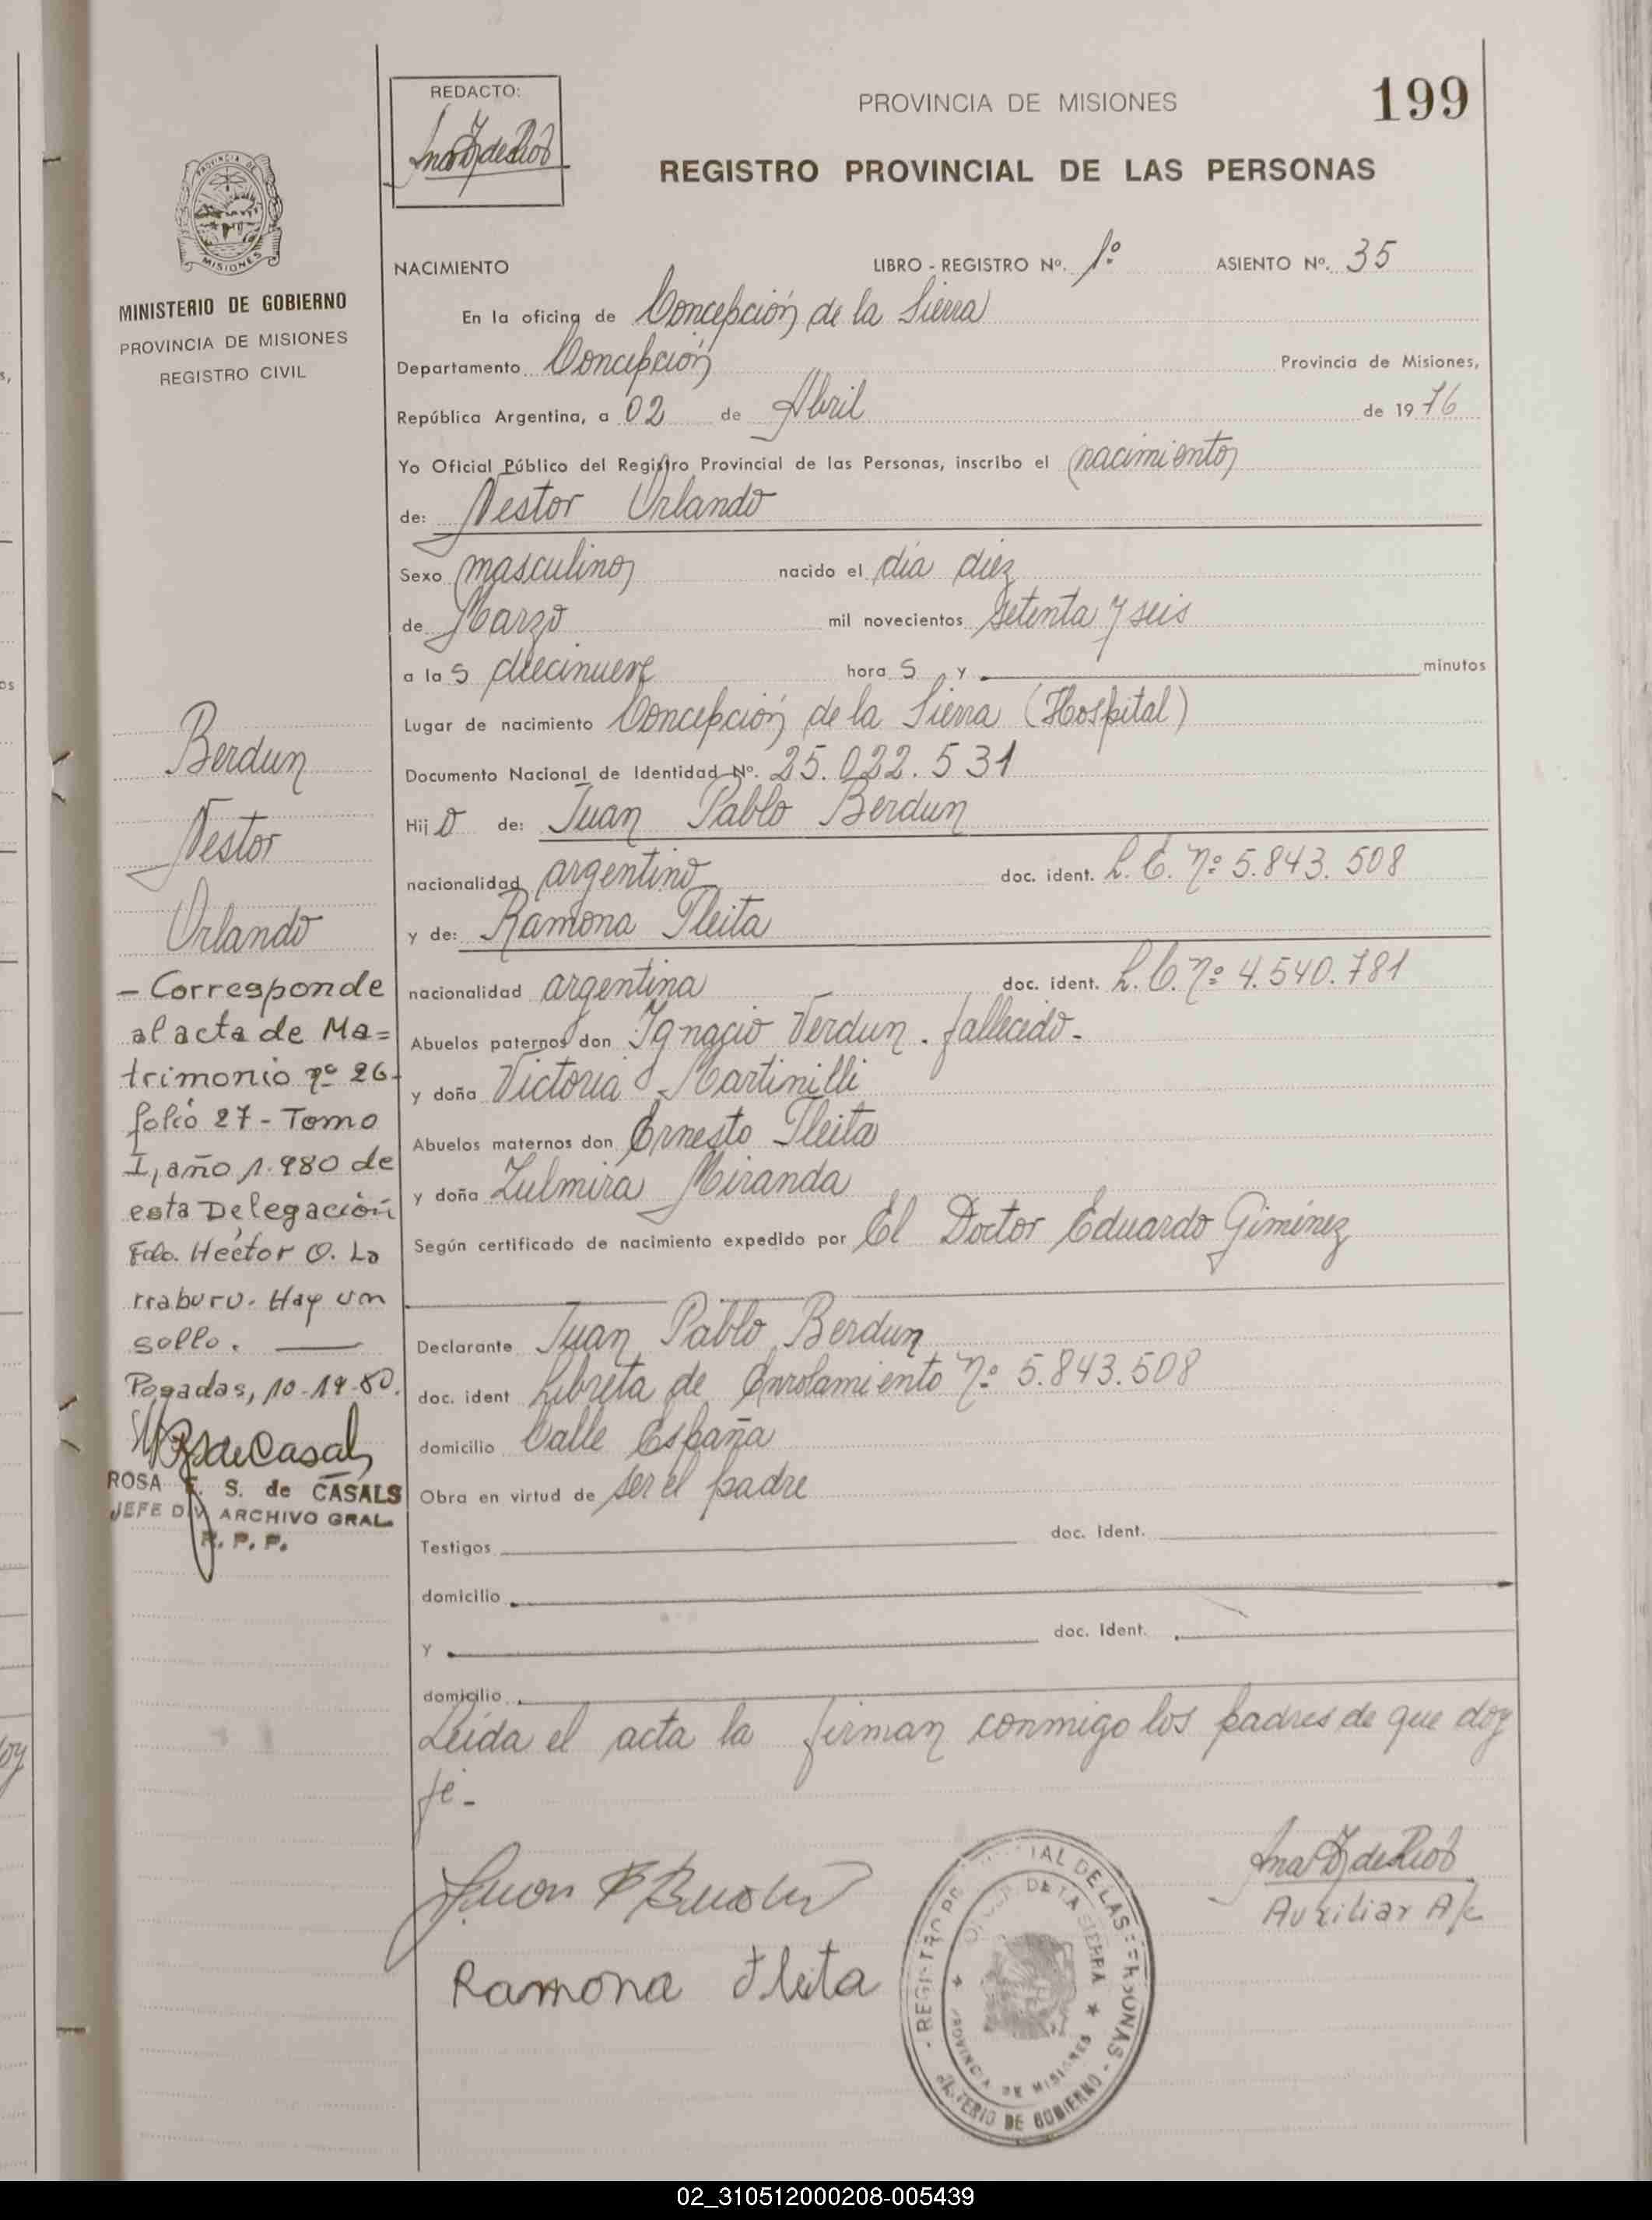 REDACTO:
PROVINCIA DE MISIONES
199
REGISTRO PROVINCIAL DE LAS PERSONAS
MISIONES
MINISTERIO DE GOBIERNO
PROVINCIA DE MISIONES
REGISTRO CIVIL
NACIMIENTO LIBRO - REGISTRO Nº. 1º ASIENTO Nº. 35
En la oficina de Concepción de la Sierra
Departamento Concepción Provincia de Misiones,
República Argentina, a 02 de Abril de 1976
Yo Oficial Público del Registro Provincial de las Personas, inscribo el nacimiento
de: Nestor Orlando
Sexo masculino nacido el día diez
de Marzo mil novecientos setenta y seis
a las diecinueve horas y minutos
Lugar de nacimiento Concepción de la Sierra (Hospital)
Documento Nacional de Identidad Nº. 25.022.531
Hijo de: Juan Pablo Berdun
nacionalidad argentino doc. ident. L.E. nº 5.843.508
y de: Ramona Fleita
nacionalidad argentina doc. ident. L.C. nº 4.540.781
Abuelos paternos don Ignacio Verdun. fallecido-
y doña Victoria Martinilli
Abuelos maternos don Ernesto Fleita
y doña Zulmira Miranda
Según certificado de nacimiento expedido por El Doctor Eduardo Giminez
Declarante Juan Pablo Berdun
doc. ident Libreta de Enrolamiento nº 5.843.508
domicilio Calle España
Obra en virtud de ser el padre
Testigos doc. ident.
domicilio
y doc. ident.
domicilio
Leida el acta la firman conmigo los padres de que doy
fé-
Berdun
Nestor
Orlando
- Corresponde
al acta de Ma=
trimonio nº 26-
folio 27 - Tomo
I, año 1.980 de
esta Delegación
Fdo. Héctor O. La
rraburu. Hay un
sello.
Posadas, 10-19-80.
ROSA S. de CASALS
JEFE DIV. ARCHIVO GRAL.
R. P. P.
Ramona Fleita
Auxiliar A/c
DE LA SIERRA
PROVINCIA DE MISIONES
02_310512000208-005439